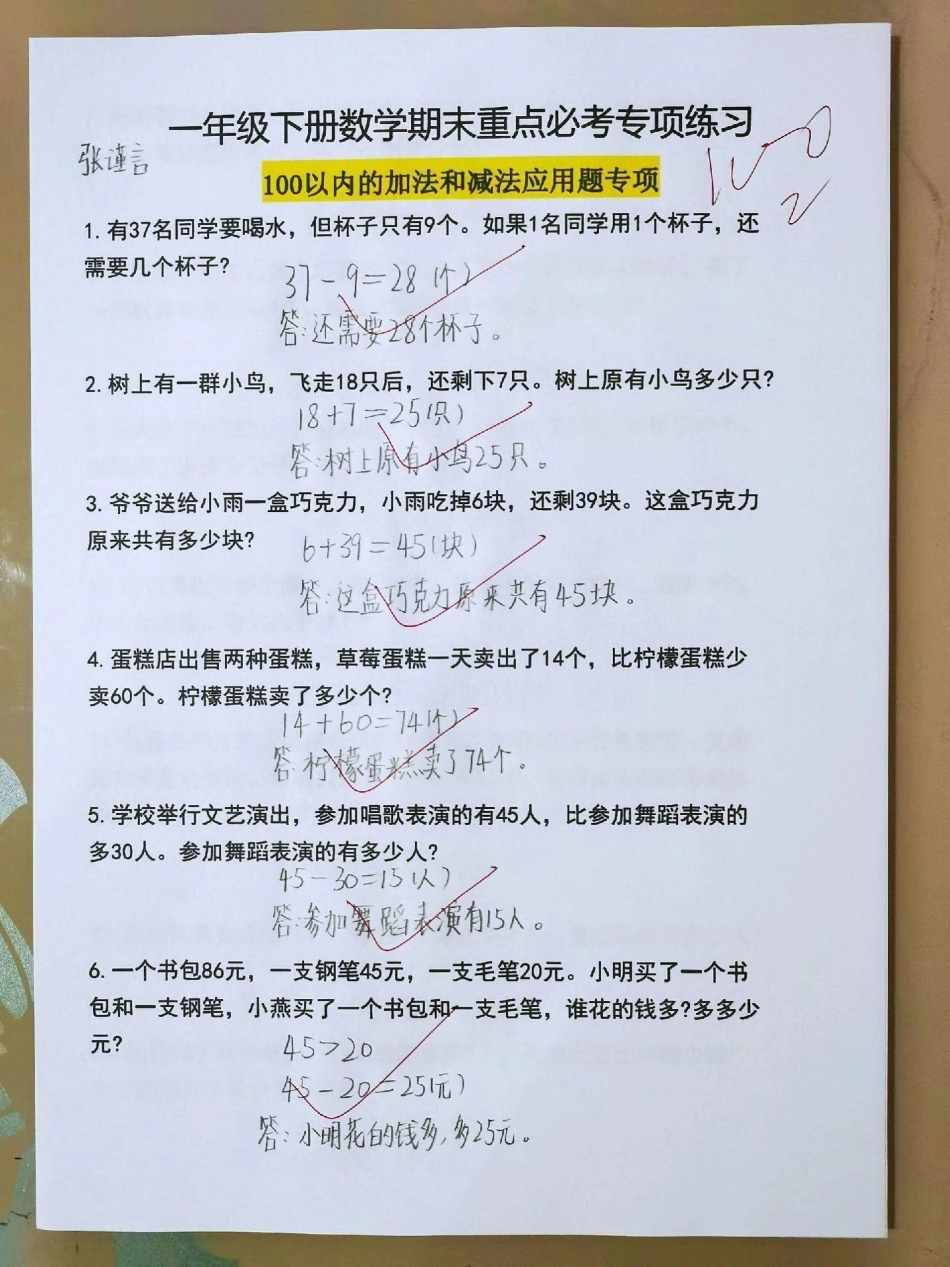 一年级下册数学期末重点必考专项练习
张谨言
100
2
100以内的加法和减法应用题专项
1. 有37名同学要喝水，但杯子只有9个。如果1名同学用1个杯子，还
需要几个杯子?
37-9=28(个)
答:还需要28个杯子。
2. 树上有一群小鸟，飞走18只后，还剩下7只。树上原有小鸟多少只?
18+7=25(只)
答:树上原有小鸟25只。
3. 爷爷送给小雨一盒巧克力，小雨吃掉6块，还剩39块。这盒巧克力
原来共有多少块?
6+39=45(块)
答:这盒巧克力原来共有45块。
4. 蛋糕店出售两种蛋糕，草莓蛋糕一天卖出了14个，比柠檬蛋糕少
卖60个。柠檬蛋糕卖了多少个?
14+60=74(个)
答:柠檬蛋糕卖了74个。
5. 学校举行文艺演出，参加唱歌表演的有45人，比参加舞蹈表演的
多30人。参加舞蹈表演的有多少人?
45-30=15(人)
答:参加舞蹈表演有15人。
6. 一个书包86元，一支钢笔45元，一支毛笔20元。小明买了一个书
包和一支钢笔，小燕买了一个书包和一支毛笔，谁花的钱多?多多少
元?
45>20
45-20=25(元)
答:小明花的钱多,多25元。